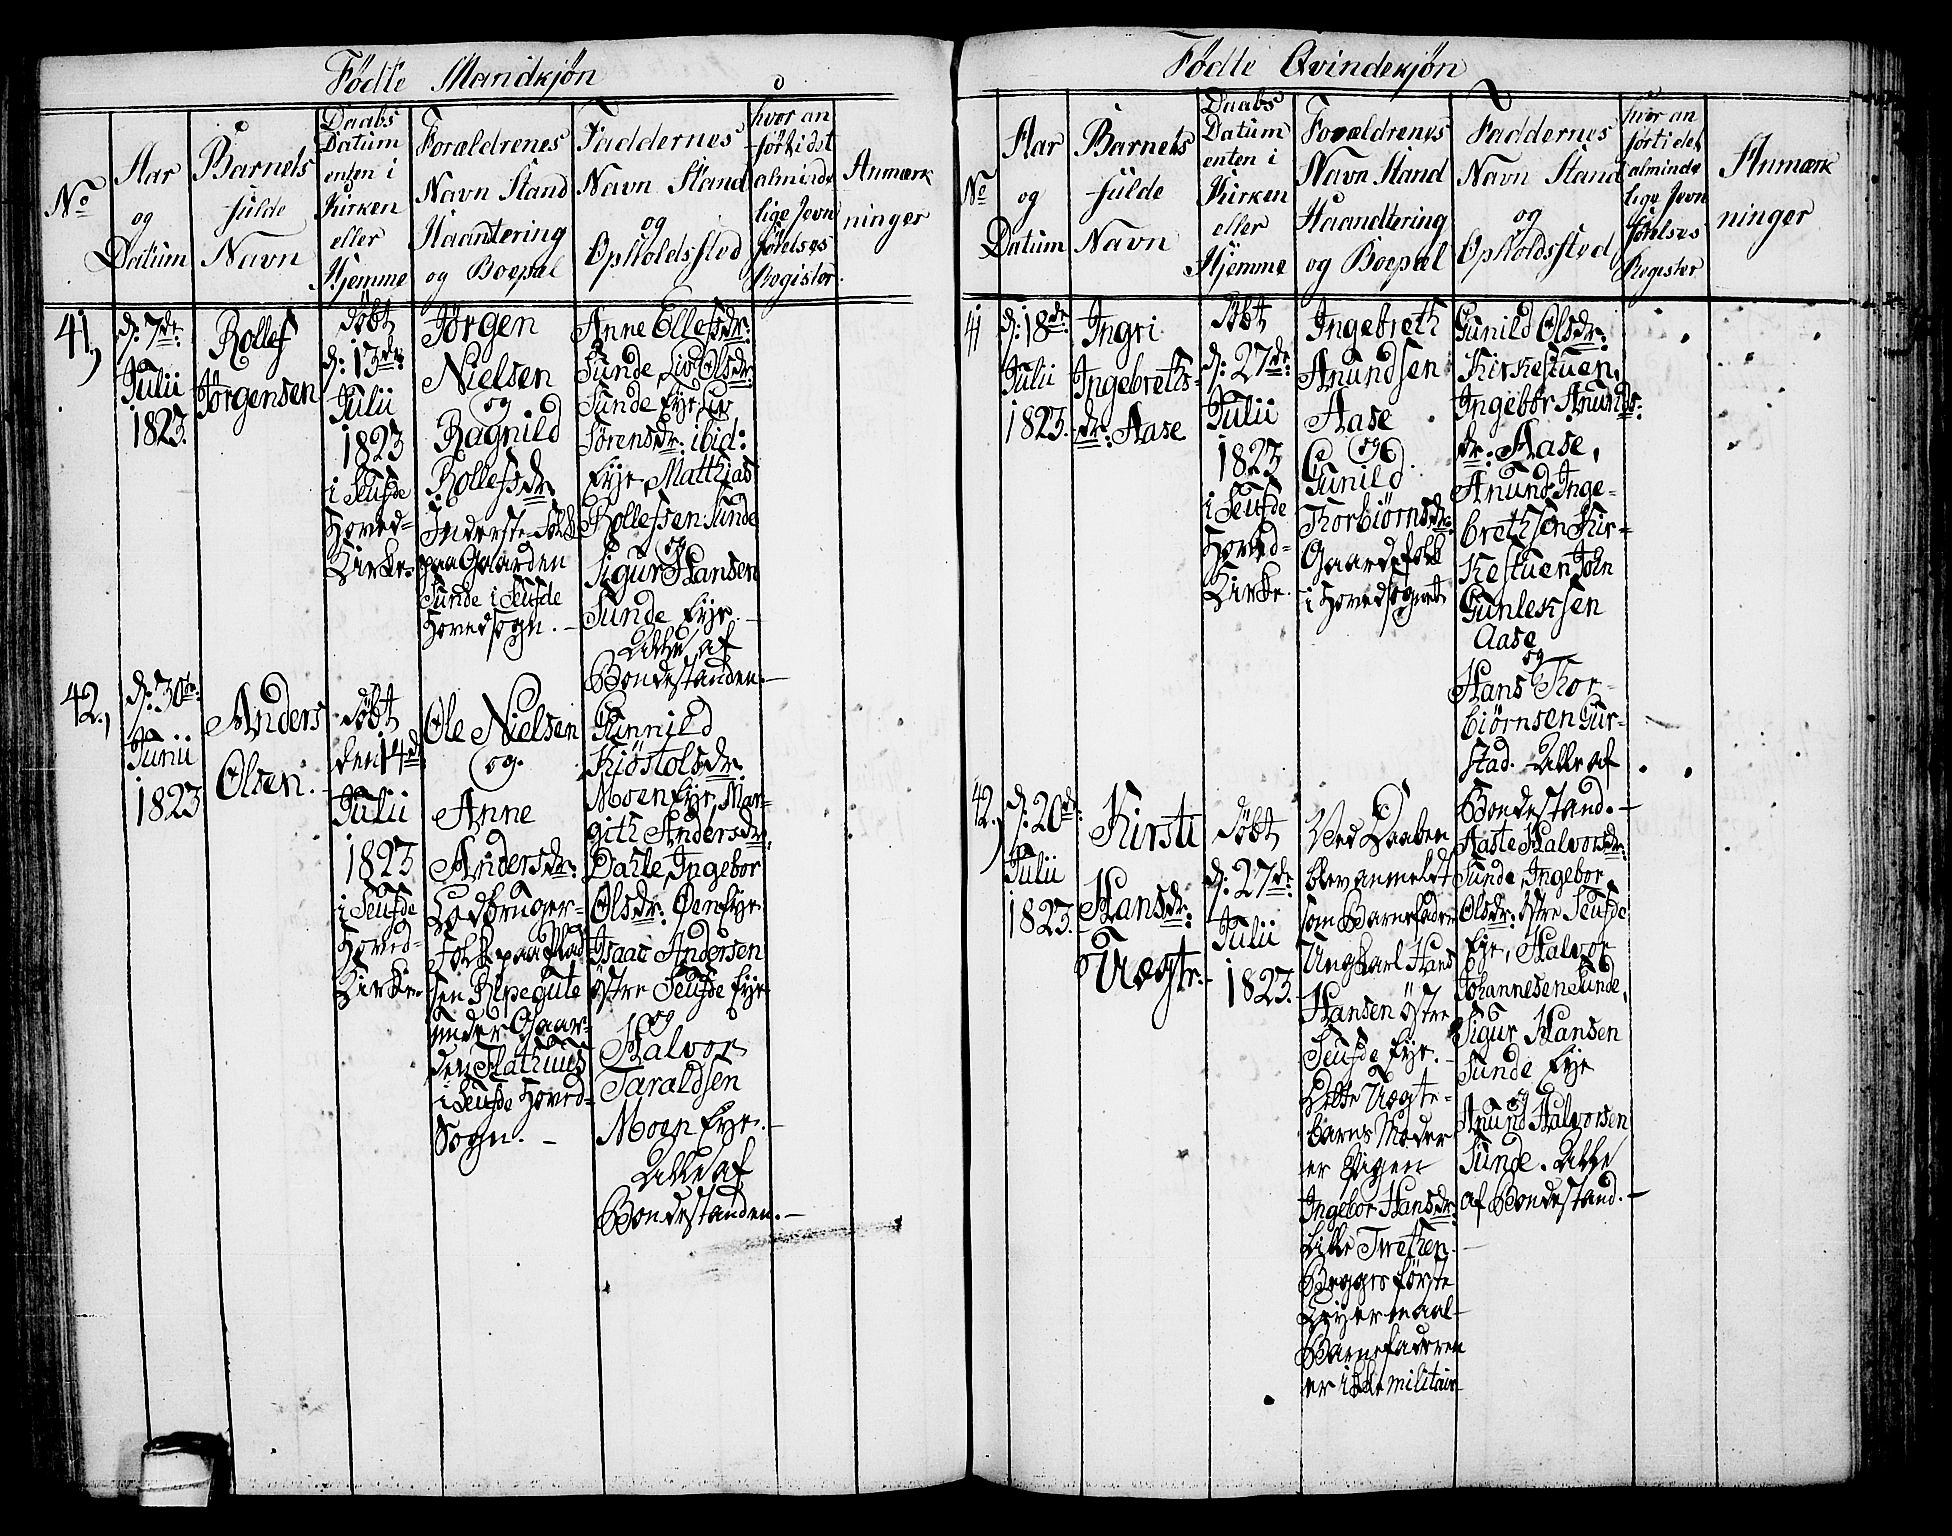 Födte Mandkjön
No
Aar
og
Datum
Barnets
fulde
Navn
Daabs
Datum
enten i
Kirken
eller
Hjemme
Forældrenes
Navn Stand
Haantering
og Boepæl
Faddernes
Navn Stand
og
Opholdssted
hvor an
fört i det
alminde
lige Jevn
förelses
Register
Anmærk
ninger
41,
d: 7de
Julii
1823.
Rollef
Jörgensen
döbt
d: 13de
Julii
1823
i Seufde
Hoved-
Kirke.
Jörgen
Nielsen
og
Ragnild
Rollefsdr.
Inderste-Folk
paa Gaarden
Sunde i Seufde
Hovedsogn. -
Anne Ellefsdr:
Sunde, Liv Olsdr:
Sunde Eye, Liv
Sörensdr: ibid:
Eye, Matthias
Rollefsen Sunde
og
Sigur Hansen
Sunde Eye. -
Alle af
Bondestanden. -
42,
d: 30te
Junii
1823
Anders
Olsen.
döbt
den 14de
Julii
1823
i Seufde
Hoved-
Kirke.
Ole Nielsen
og
Anne
Andersdr:
Ledbruger-
Folk paa Plad
sen Ripegute
under Gaar-
den Flathuus
i Seufde Hoved-
Sogn. -
Gunnild
Kiöstolsdr.
Moen Eye, Mar-
gith Andersdr.
Dahle, Ingebor
Olsdr: Öen Eye
Isaac Andersen
östre Seufde Eye
og
Halvor
Taraldsen
Moen Eye. -
Alle af
Bondestanden. -
Födte Qvindekjön
No
Aar
og
Datum
Barnets
fulde
Navn
Daabs
Datum
enten i
Kirken
eller
Hjemme
Forældrenes
Navn Stand
Haandtering
og Boepæl
Faddernes
Navn Stand
og
Opholdssted
hvor an
fört i det
alminde
lige Jevn
förelses
Register
Anmærk
ninger
41
d: 18de
Julii
1823.
Ingri
Ingebreths-
dr: Aase
döbt
d: 27de
Julii
1823
i Seufde
Hoved-
Kirke. -
Ingebreth
Anundsen
Aase
og
Gunild
Thorbiörnsdr:
Gaardefolk
i Hovedsognet
Gunild Olsdr:
Kirkestuen,
Ingebor Anunds-
dr: Aase,
Anund Inge-
brethsen Kir-
kestuen John
Gunleksen
Aase
og
Hans Thor-
biörnsen Gur-
stad. Alle af
Bondestand. -
42,
d: 20de
Julii
1823.
Kirsti
Hansdr:
Uægte. -
döbt
d: 27de
Julii
1823.
Ved Daaben
blev anmeldt
som Barnefader
Ungkarl Hans
Hansen östre
Seufde Eye. -
Dette Uægte-
barns Moder
er Pigen
Ingebor Hansdr.
Lille Twethen. -
Begges förste
Leyermaal
Barnefaderen
er ikke militair
Aaste Halvorsdr:
Sunde, Ingebor
Olsdr: östre Seufde
Eye, Halvor
Johannesen Sunde,
Sigur Hansen
Sunde Eye
og
Anund Halvorsen
Sunde. Alle
af Bondestand. -